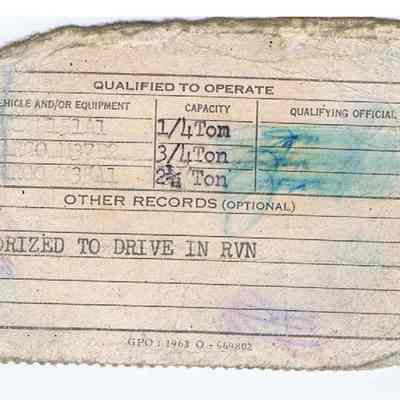 QUALIFIED TO OPERATE
EHICLE AND/OR EQUIPMENT CAPACITY QUALIFYING OFFICIAL
1/4Ton
3/4Ton
2½ Ton
OTHER RECORDS (OPTIONAL)
ORIZED TO DRIVE IN RVN
GPO : 1963 O - 669802